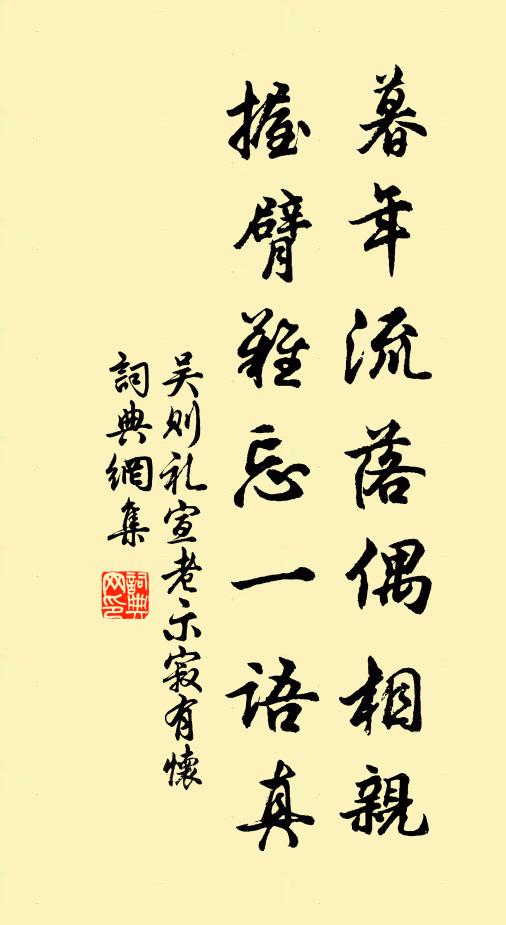 暮年流落偶相親
握臂難忘一语真
吴则礼宣老示寂有懷
詞典網集
詞典網印